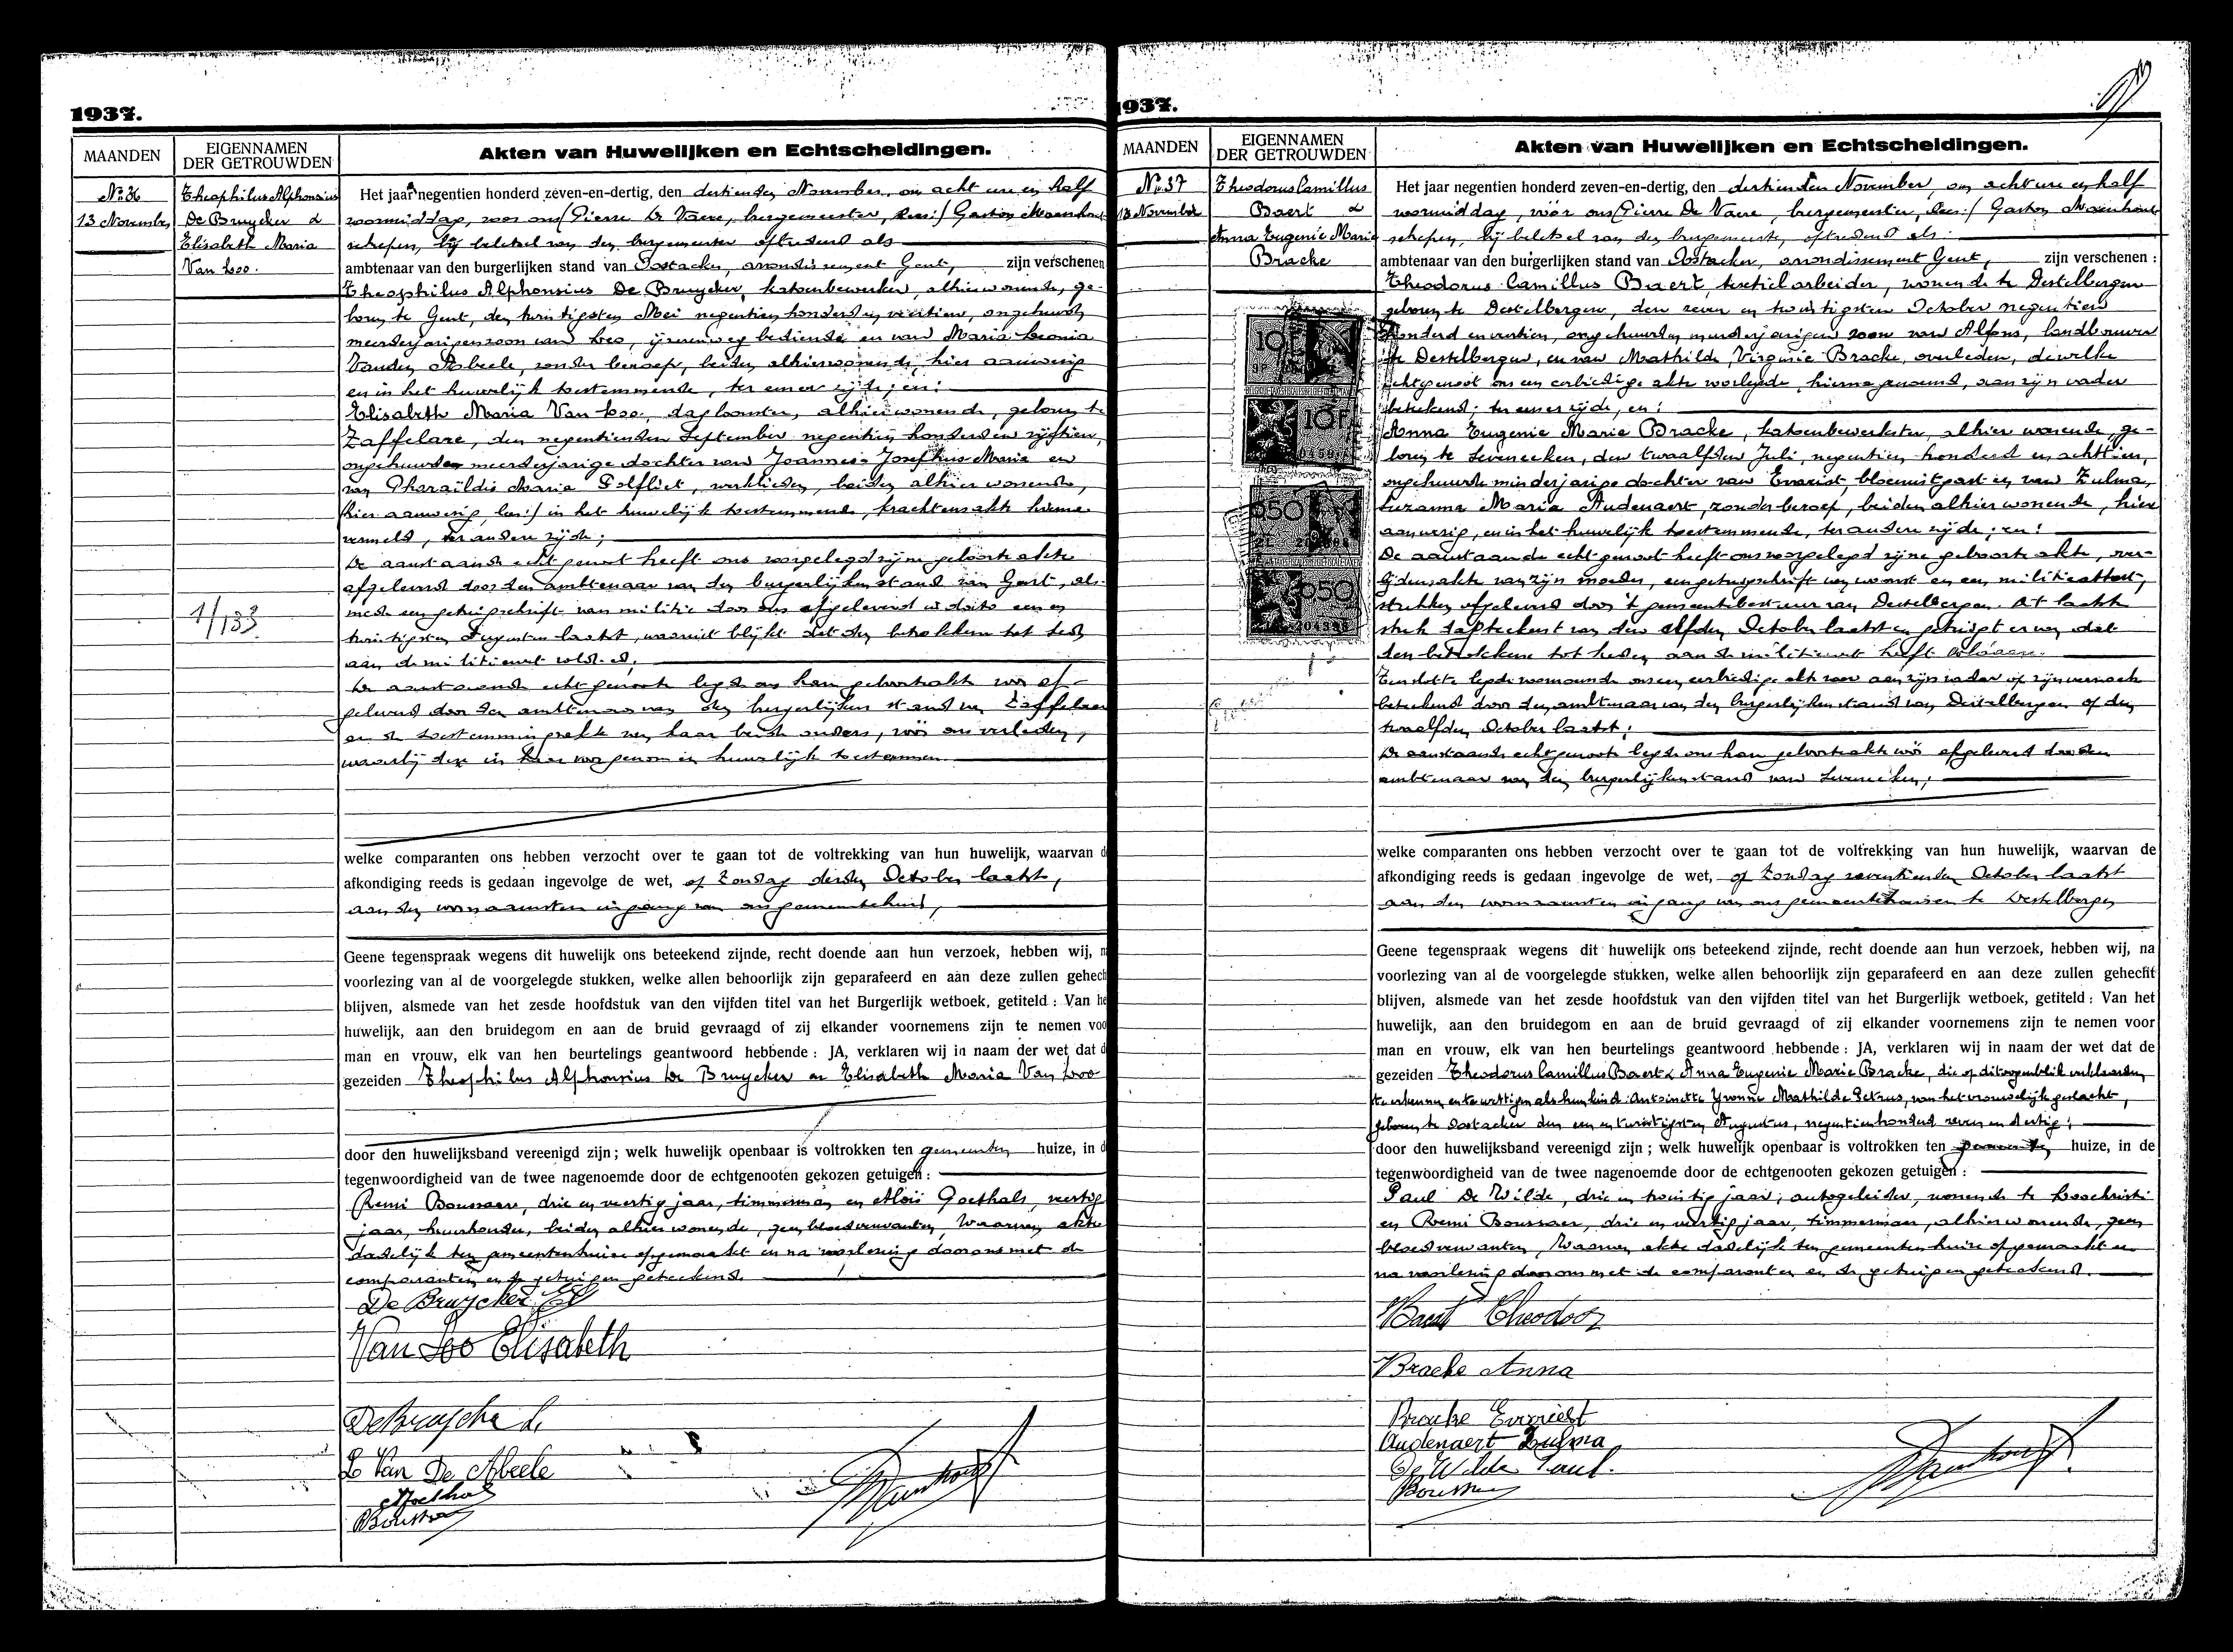 1937.
MAANDEN
EIGENNAMEN
DER GETROUWDEN
Akten van Huwelijken en Echtscheidingen.
No 36
13 November
Theophilus Alphonsius
De Bruycker &
Elisabeth Maria
Van Loo.
1/133
Het jaar negentien honderd zeven-en-dertig, den dertienden November, om acht ure en half
voormiddag, voor ons (Pierre De Vaere, burgemeester, lees:) Gaston
schepen, bij beletsel van den burgemeester optredend als
ambtenaar van den burgerlijken stand van Oostacker, arrondissement Gent, zijn verschenen
Theophilus Alphonsius De Bruycker, katoenbewerker, alhier wonende, ge-
boren te Gent, den twintigsten Mei negentien honderd en veertien, ongehuwde
meerderjarigen zoon van Leo, ijzerenweg bediende en van Maria Leonia
Vanden Abeele, zonder beroep, beiden alhier wonende, hier aanwezig
en in het huwelijk toestemmende, ter eener zijde; en:
Elisabeth Maria Van Loo, dagloonster, alhier wonende, geboren te
Zaffelare, den negentienden September negentien honderd en vijftien,
ongehuwde meerderjarige dochter van Joannes-Josephus-Maria en
van Pharaïldis Maria Polfliet, beiden alhier wonende,
(hier aanwezig, lees:) in het huwelijk toestemmende, krachtens akte hierna
vermeld, ter andere zijde;
De aanstaande echtgenoot heeft ons voorgelegd zijne geboorteakte
afgeleverd door den ambtenaar van den burgerlijken stand van Gent, als-
mede een getuigschrift van militie door ons afgeleverd in dato een en
twintigsten Augustus laatst, waaruit blijkt dat den betrokkene tot heden
aan de militiewet voldeed;
De aanstaande echtgenoote legde ons haar geboorteakte voor af-
geleverd door den ambtenaar van den burgerlijken stand van Zaffelare
en de toestemmingsakte van haar beide ouders, vóór ons verleden,
waarbij deze in haar voorgenomen huwelijk toestemmen.
welke comparanten ons hebben verzocht over te gaan tot de voltrekking van hun huwelijk, waarvan d
afkondiging reeds is gedaan ingevolge de wet, op Zondag derden October laatst,
aan den voornaamsten ingang van ons gemeentehuis,
Geene tegenspraak wegens dit huwelijk ons beteekend zijnde, recht doende aan hun verzoek, hebben wij, n
voorlezing van al de voorgelegde stukken, welke allen behoorlijk zijn geparafeerd en aan deze zullen gehech
blijven, alsmede van het zesde hoofdstuk van den vijfden titel van het Burgerlijk wetboek, getiteld : Van he
huwelijk, aan den bruidegom en aan de bruid gevraagd of zij elkander voornemens zijn te nemen voo
man en vrouw, elk van hen beurtelings geantwoord hebbende : JA, verklaren wij in naam der wet dat d
gezeiden Theophilus Alphonsius De Bruycker en Elisabeth Maria Van Loo
door den huwelijksband vereenigd zijn ; welk huwelijk openbaar is voltrokken ten gemeenten huize, in d
tegenwoordigheid van de twee nagenoemde door de echtgenooten gekozen getuigen :
Remi Boussaer, drie en veertig jaar, timmerman en Aloïs Goethals, veertig
jaar, huurhouder, beiden alhier wonende, geen bloedverwanten, Waarvan akte
dadelijk ten gemeentenhuize opgemaakt en na voorlezing door ons met de
comparanten en de getuigen geteekend.
De Bruycker
Van Loo Elisabeth
De Bruycker L.
L Van De Abeele
AGoethals
Boussaer
1937.
MAANDEN
EIGENNAMEN
DER GETROUWDEN
Akten van Huwelijken en Echtscheidingen.
No 37
13 November
Theodorus Camillus
Baert &
Anna Eugenie Marie
Bracke
10F
10F
050
050
Het jaar negentien honderd zeven-en-dertig, den dertienden November, om acht ure en half
voormiddag, vóór ons (Pierre De Vaere, burgemeester, lees:) Gaston
schepen, bij beletsel van den burgemeester, optredend als:
ambtenaar van den burgerlijken stand van Oostacker, arrondissement Gent, zijn verschenen :
Theodorus Camillus Baert, textielarbeider, wonende te Destelbergen
geboren te Destelbergen, den zeven en twintigsten October negentien
honderd en veertien, ongehuwden meerderjarigen zoon van Alfons, landbouwer
te Destelbergen, en van Mathilde Virginie Bracke, overleden, dewelke
echtgenoot ons een eerbiedige akte voorlegde, hierna genoemd, aan zijn vader
beteekend; ter eener zijde, en:
Anna Eugenie Marie Bracke, katoenbewerkster, alhier wonende, ge-
boren te Sevenecken, den twaalfden Juli, negentien honderd en achttien,
ongehuwde minderjarige dochter van Evarist, bloemistgast en van Zulma,
Suzanna Maria Audenaert, zonder beroep, beiden alhier wonende, hier
aanwezig, en in het huwelijk toestemmende, ter andere zijde; en:
De aanstaande echtgenoot heeft ons voorgelegd zijne geboorteakte, over-
lijdensakte van zijn moeder, een getuigschrift van woonst en een militieattest,
stukken afgeleverd door 't gemeentebestuur van Destelbergen. Dit laatste
stuk dagteekent van den elfden October laatst en getuigt ervan dat
den betrokkene tot heden aan de militiewet heeft voldaan.
Ten slotte legde voornoemde ons een eerbiedige akt voor aan zijn vader op zijn verzoek
beteekend door den ambtenaar van den burgerlijken stand van Destelbergen op den
twaalfden October laatst;
De aanstaande echtgenoote legde ons haar geboorteakte vóór afgeleverd door den
ambtenaar van den burgerlijken stand van Sevenecken;
welke comparanten ons hebben verzocht over te gaan tot de voltrekking van hun huwelijk, waarvan de
afkondiging reeds is gedaan ingevolge de wet, op Zondag zeventienden October laatst
aan den voornaamsten ingang van ons gemeentehuis en te Destelbergen
Geene tegenspraak wegens dit huwelijk ons beteekend zijnde, recht doende aan hun verzoek, hebben wij, na
voorlezing van al de voorgelegde stukken, welke allen behoorlijk zijn geparafeerd en aan deze zullen gehecht
blijven, alsmede van het zesde hoofdstuk van den vijfden titel van het Burgerlijk wetboek, getiteld : Van het
huwelijk, aan den bruidegom en aan de bruid gevraagd of zij elkander voornemens zijn te nemen voor
man en vrouw, elk van hen beurtelings geantwoord hebbende : JA, verklaren wij in naam der wet dat de
gezeiden Theodorus Camillus Baert & Anna Eugenie Marie Bracke, die op dit oogenblik verklaarden
te erkennen en te wettigen als hun kind: Antoinette Yvonne Mathilde Petrus, van het vrouwelijk geslacht,
geboren te Oostacker den een en twintigsten Augustus, negentienhonderd zeven en dertig;
door den huwelijksband vereenigd zijn ; welk huwelijk openbaar is voltrokken ten gemeenten huize, in de
tegenwoordigheid van de twee nagenoemde door de echtgenooten gekozen getuigen :
Paul De Wilde, drie en twintig jaar, autogeleider, wonende te Loochristi
en Remi Boussaer, drie en veertig jaar, timmerman, alhier wonende, geen
bloedverwanten, Waarvan akte dadelijk ten gemeentenhuize opgemaakt en
na voorlezing door ons met de comparanten en de getuigen geteekend.
Baert Theodoor
Bracke Anna
Bracke Evarist
Audenaert Zulma
De Wilde Paul.
Boussaer